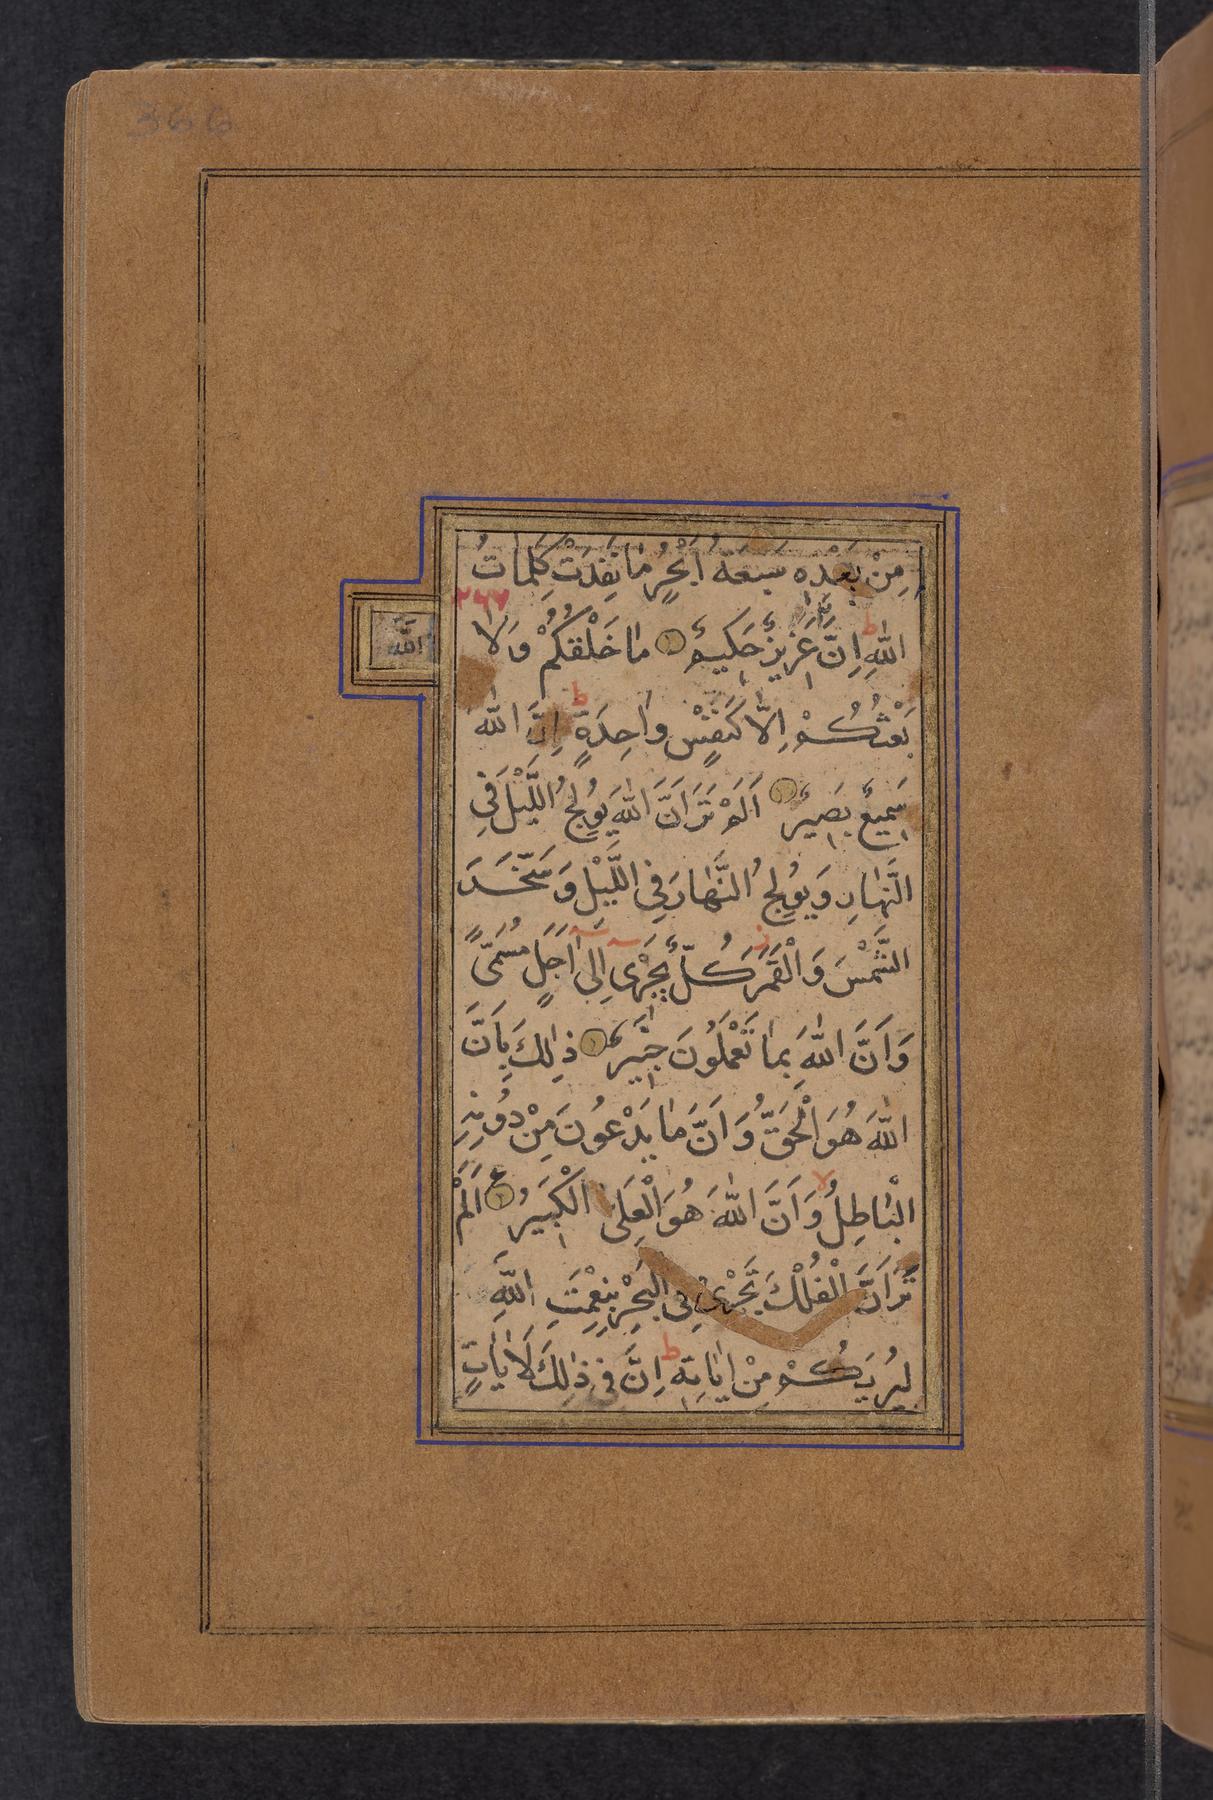 366
مِنْ بَعْدِهِ سَبْعَةُ اَبْحُرٍ مٰا نَفِدَتْ كَلِمٰاتُ
اللّٰهِ اِنَّ اللّٰهَ عَزِيزٌ حَكِيمٌ مٰا خَلْقُكُمْ وَلٰا
الله
بَعْثُكُمْ اِلّٰا كَنَفْسٍ وٰاحِدَةٍ ط اِنَّ اللّٰهَ
سَمِيعٌ بَصِيرٌ اَلَمْ تَرَ اَنَّ اللّٰهَ يُولِجُ اللَّيْلَ فِي
النَّهٰارِ وَيُولِجُ النَّهٰارَ فِي اللَّيْلِ وَسَخَّرَ
الشَّمْسَ وَالْقَمَرَ ز كُلٌّ يَجْرِي اِلٰى اَجَلٍ مُسَمًّى
وَاَنَّ اللّٰهَ بِمٰا تَعْمَلُونَ خَبِيرٌ ذٰلِكَ بِاَنَّ
اللّٰهَ هُوَ الْحَقُّ وَاَنَّ مٰا يَدْعُونَ مِنْ دُونِهِ
الْبٰاطِلُ لا وَاَنَّ اللّٰهَ هُوَ الْعَلِيُّ الْكَبِيرُ ع اَلَمْ
تَرَ اَنَّ الْفُلْكَ تَجْرِي فِي الْبَحْرِ بِنِعْمَتِ اللّٰهِ
لِيُرِيَكُمْ مِنْ اٰيٰاتِهِ ط اِنَّ فِي ذٰلِكَ لَاٰيٰاتٍ